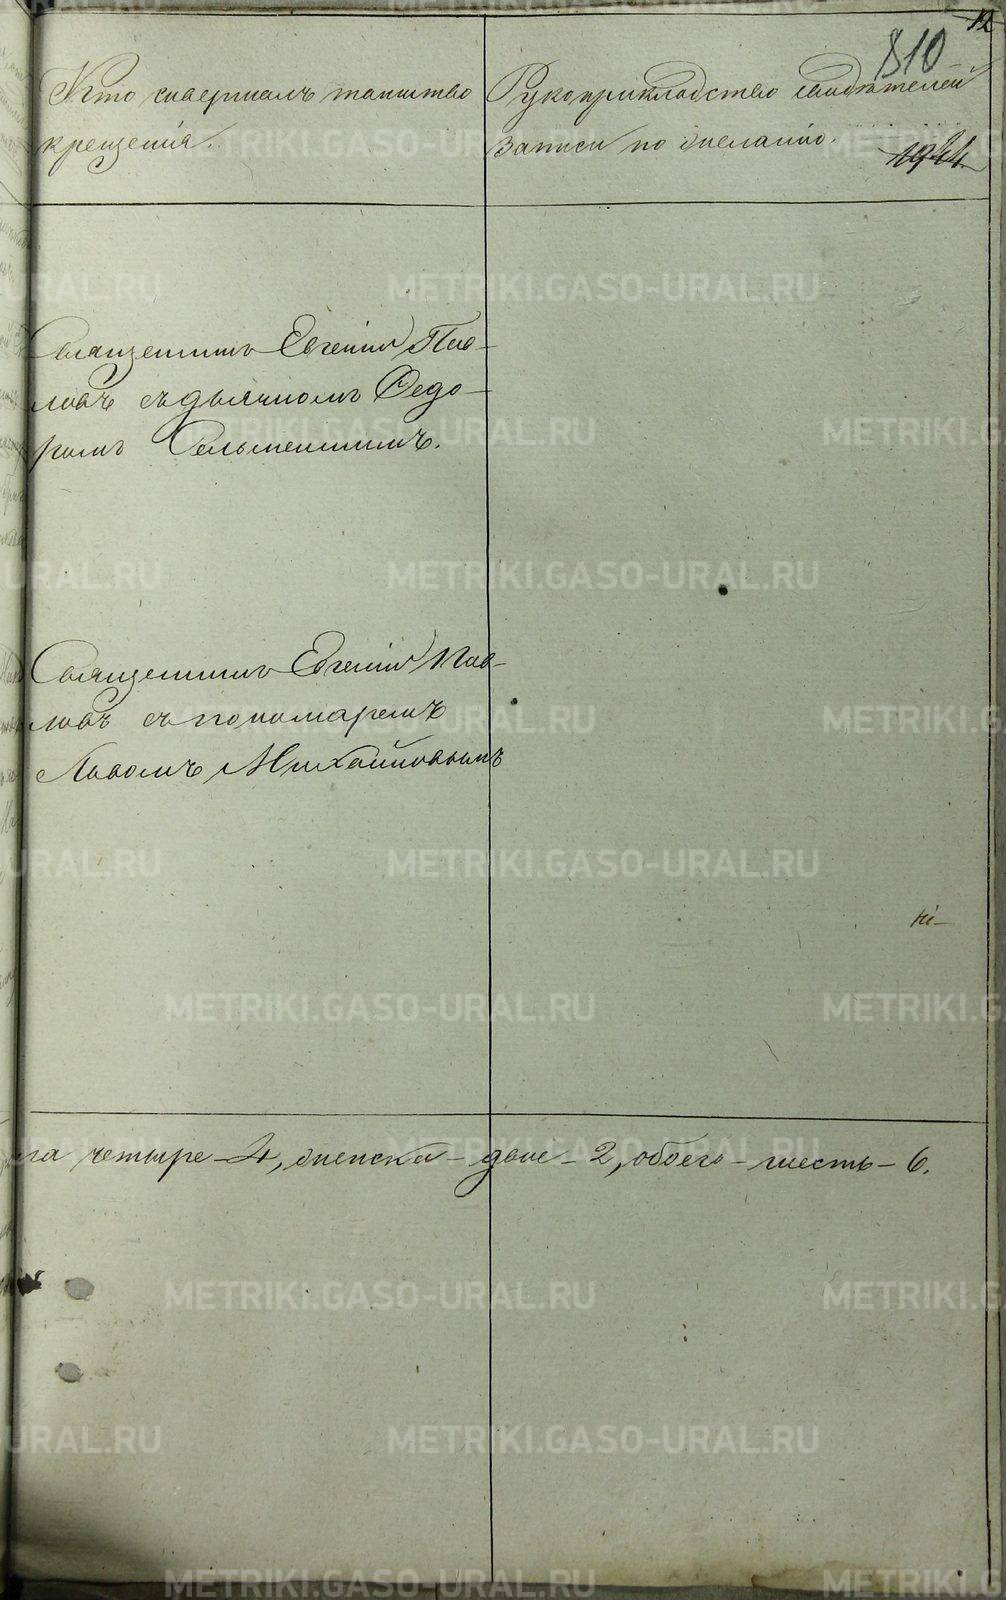 12
810
Кто совершалъ таинство
крещенія.
Рукоприкладство свидѣтелей
записи по желанію.
1944
Священникъ Евгеній Пав-
ловъ съ дьячкомъ Ѳедо-
ромъ Сельменскимъ.
Священникъ Евгеній Пав-
ловъ съ пономаремъ
Львомъ Михайловымъ
четыре - 4, женска - двѣ - 2, обоего - шесть - 6.
METRIKI.GASO-URAL.RU